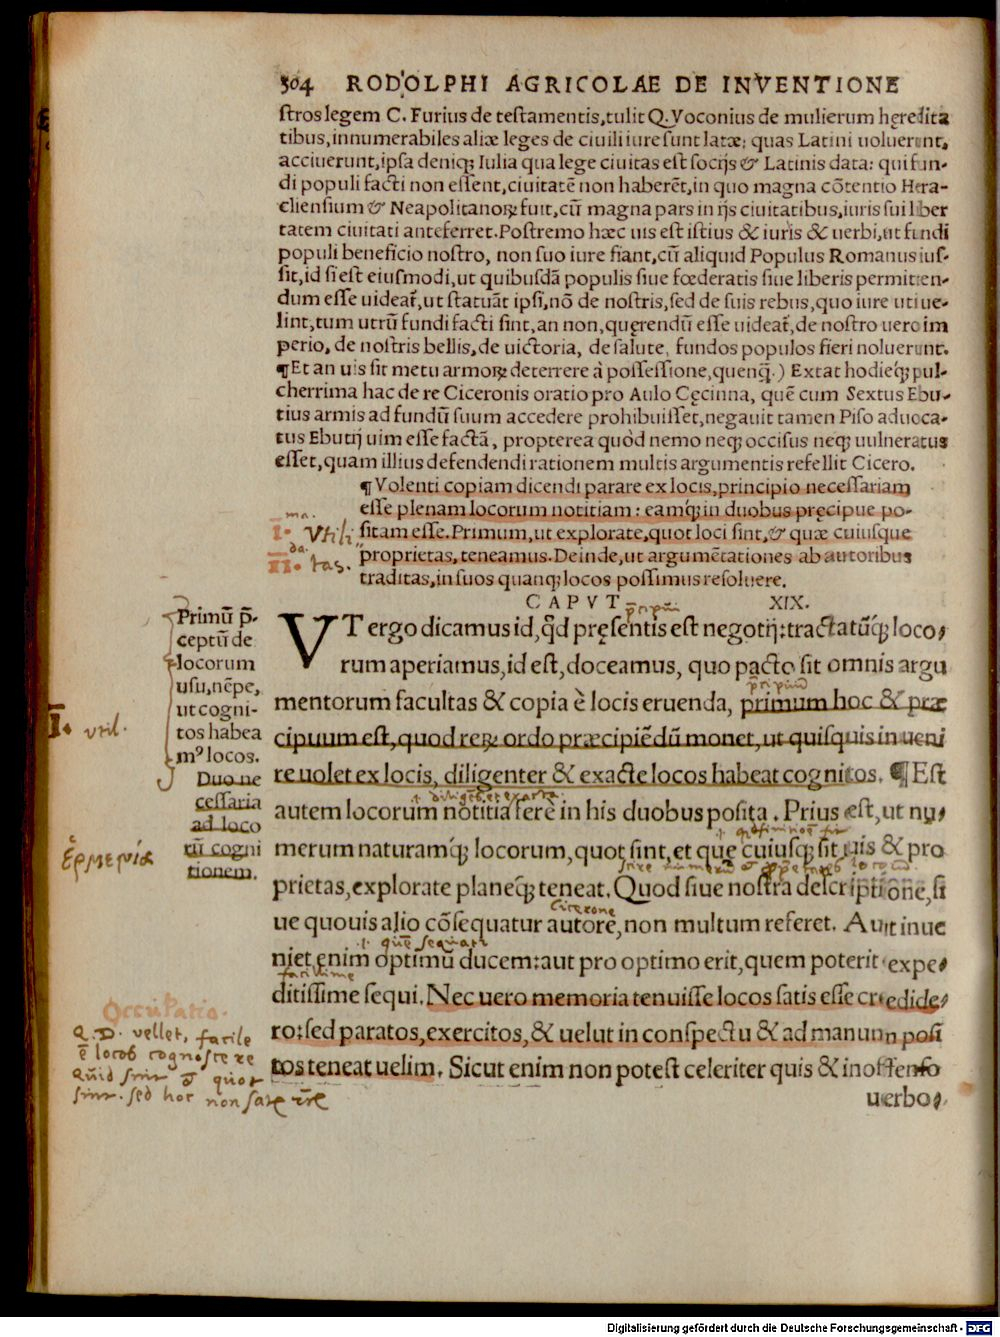 304 RODOLPHI AGRICOLAE DE INVENTIONE
stros legem C. Furius de testamentis, tulit Q. Voconius de mulierum hęredita
tibus, innumerabiles aliæ leges de ciuili iure sunt latæ: quas Latini uoluerunt,
acciuerunt, ipsa deniqꝫ Iulia qua lege ciuitas est socijs & Latinis data: qui fun-
di populi facti non essent, ciuitatē non haberēt, in quo magna cōtentio Hera-
cliensium & Neapolitanoꝝ fuit, cū magna pars in ijs ciuitatibus, iuris sui liber
tatem ciuitati anteferret. Postremo hæc uis est istius & iuris & uerbi, ut fundi
populi beneficio nostro, non suo iure fiant, cū aliquid Populus Romanus ius-
sit, id si est eiusmodi, ut quibusdā populis siue fœderatis siue liberis permitten-
dum esse uideat̄, ut statuāt ipsi, nō de nostris, sed de suis rebus, quo iure uti ue-
lint, tum utrū fundi facti sint, an non, quęrendū esse uideat̄, de nostro uero im
perio, de nostris bellis, de uictoria, de salute, fundos populos fieri noluerunt.
¶Et an uis sit metu armoꝝ deterrere à possessione, quenq̄.) Extat hodieqꝫ pul-
cherrima hac de re Ciceronis oratio pro Aulo Cęcinna, quē cum Sextus Ebu-
tius armis ad fundū suum accedere prohibuisset, negauit tamen Piso aduoca-
tus Ebutij uim esse factā, propterea quòd nemo neqꝫ occisus neqꝫ uulneratus
esset, quam illius defendendi rationem multis argumentis refellit Cicero.
¶ Volenti copiam dicendi parare ex locis, principio necessariam
esse plenam locorum notitiam: eamqꝫ in duobus pręcipue po-
sitam esse. Primum, ut explorate, quot loci sint, & quæ cuiusque
proprietas, teneamus. Deinde, ut argumētationes ab autoribus
traditas, in suos quanqꝫ locos possimus resoluere.
ma.
I. Vtili
da.
II. tas.
CAPVT XIX.
VT ergo dicamus id, q̄d pręsentis est negotij: tractatūqꝫ loco-
rum aperiamus, id est, doceamus, quo pacto sit omnis argu
mentorum facultas & copia è locis eruenda, primum hoc & præ
cipuum est, quod reꝝ ordo præcipiēdū monet, ut quisquis inueni
re uolet ex locis, diligenter & exacte locos habeat cognitos. ¶ Est
autem locorum notitia ferè in his duobus posita. Prius est, ut nu-
merum naturamqꝫ locorum, quot sint, et que cuiusqꝫ sit uis & pro
prietas, explorate planeqꝫ teneat. Quod siue nostra descriptione, si
ue quouis alio cōsequatur autore, non multum referet. Aut inue
niet enim optimū ducem: aut pro optimo erit, quem poterit expe-
ditissime sequi. Nec uero memoria tenuisse locos satis esse credide-
ro: sed paratos, exercitos, & uelut in conspectu & ad manum posi
tos teneat uelim. Sicut enim non potest celeriter quis & inoffenso
uerbo-
Primū p̄-
ceptū de
locorum
usu, nēpe,
ut cogni-
tos habea
mꝰ locos.
Duo ne
cessaria
ad loco
rū cogni
tionem.
I. util.
Cicerone
facillime
Occupatio.
Q. D. vellet, facile
ē locos cognoscere